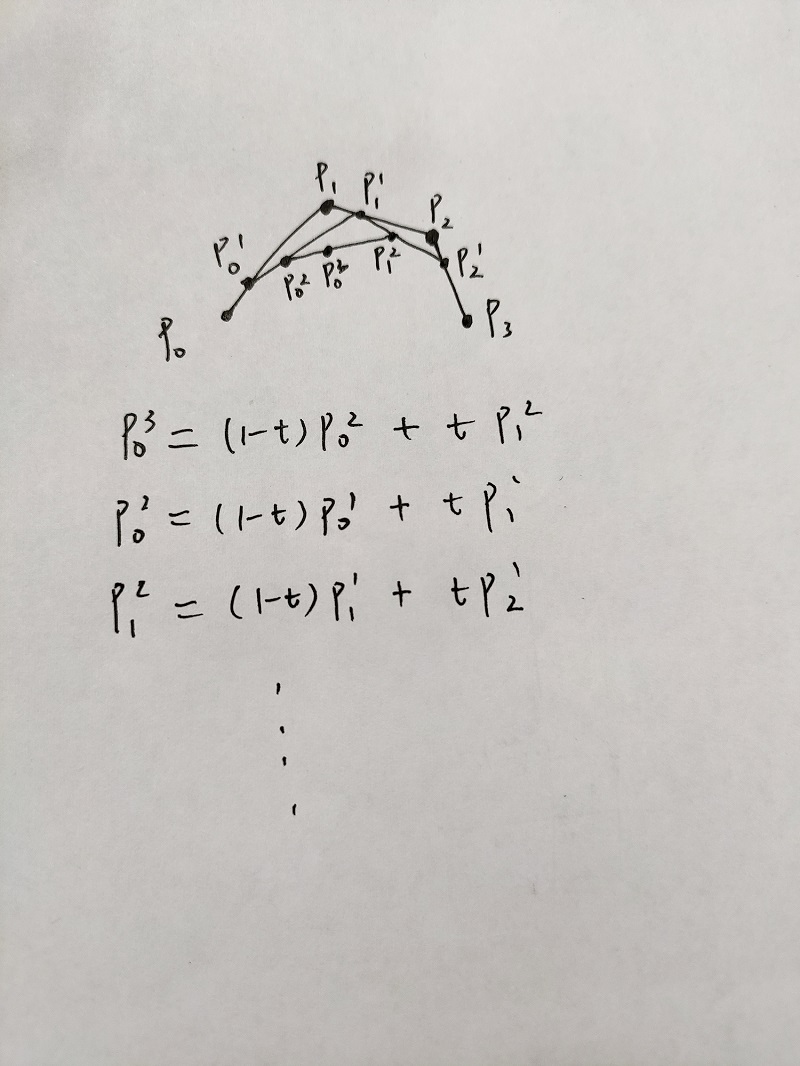 P₁ P₁¹ P₂
P₀¹ P₀² P₀³ P₁² P₂¹
P₀ P₃
P₀³ = (1-t)P₀² + t P₁²
P₀² = (1-t)P₀¹ + t P₁¹
P₁² = (1-t)P₁¹ + tP₂¹
⋮